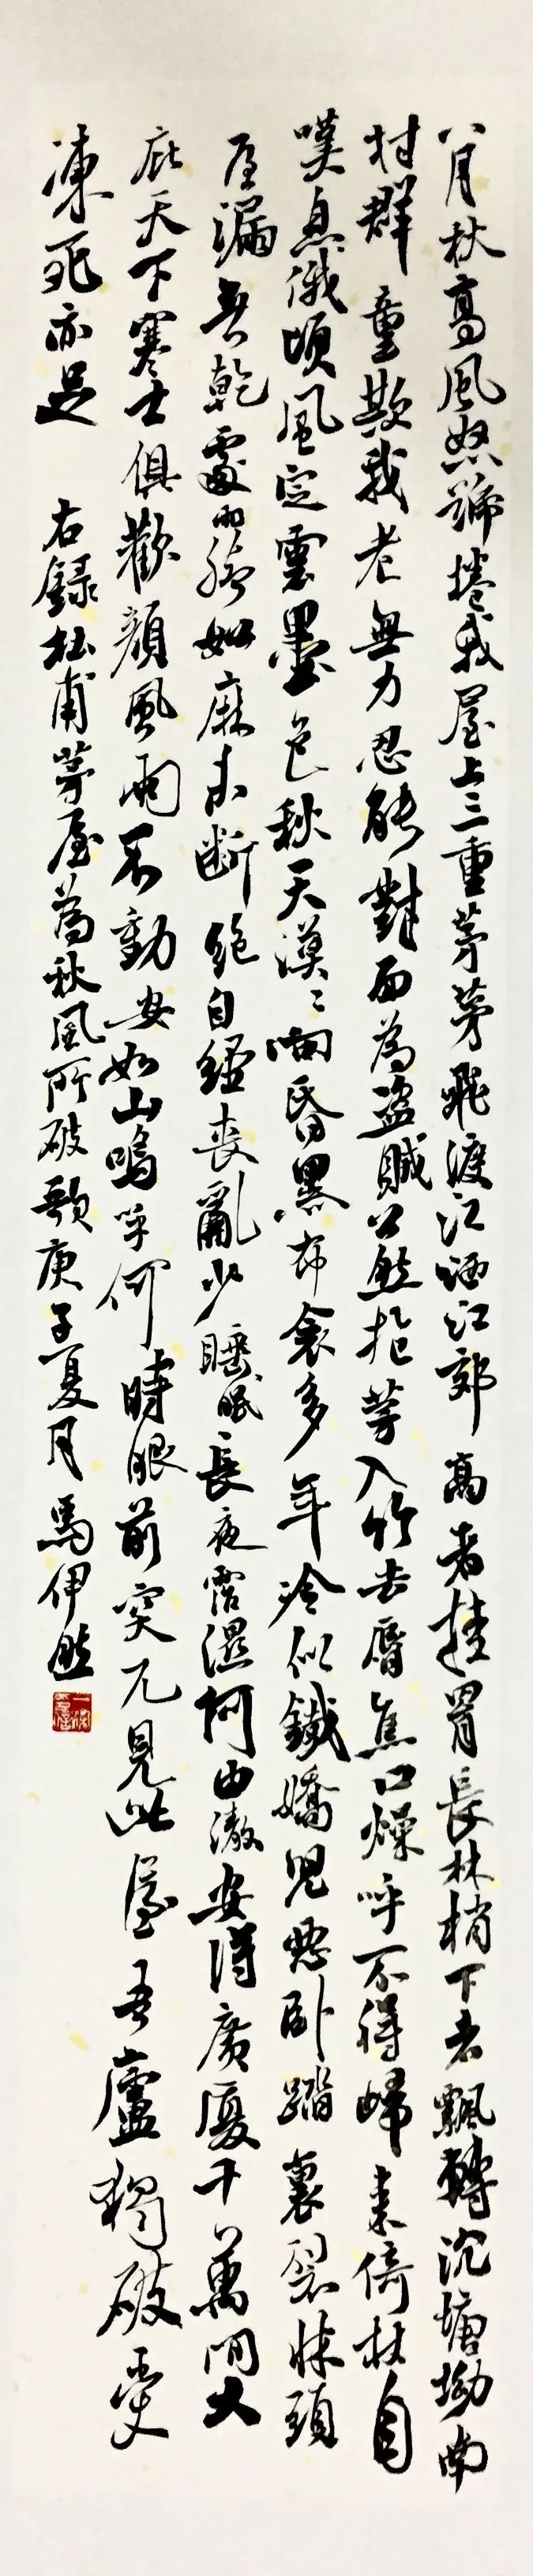 八月秋高風怒號捲我屋上三重茅茅飛渡江洒江郊高者挂罥長林梢下者飄轉沉塘坳南
村群童欺我老無力忍能對面為盜賊公然抱茅入竹去脣焦口燥呼不得歸來倚杖自
嘆息俄頃風定雲墨色秋天漠〻向昏黑布衾多年冷似鐵嬌兒惡卧踏裏裂牀頭
屋漏無乾處雨脚如麻未斷絕自經喪亂少睡眠長夜霑濕何由澈安得廣廈千萬間大
庇天下寒士俱歡顏風雨不動安如山嗚呼何時眼前突兀見此屋吾廬獨破受
凍死亦足 右錄杜甫茅屋為秋風所破歌庚子夏月馬伊然